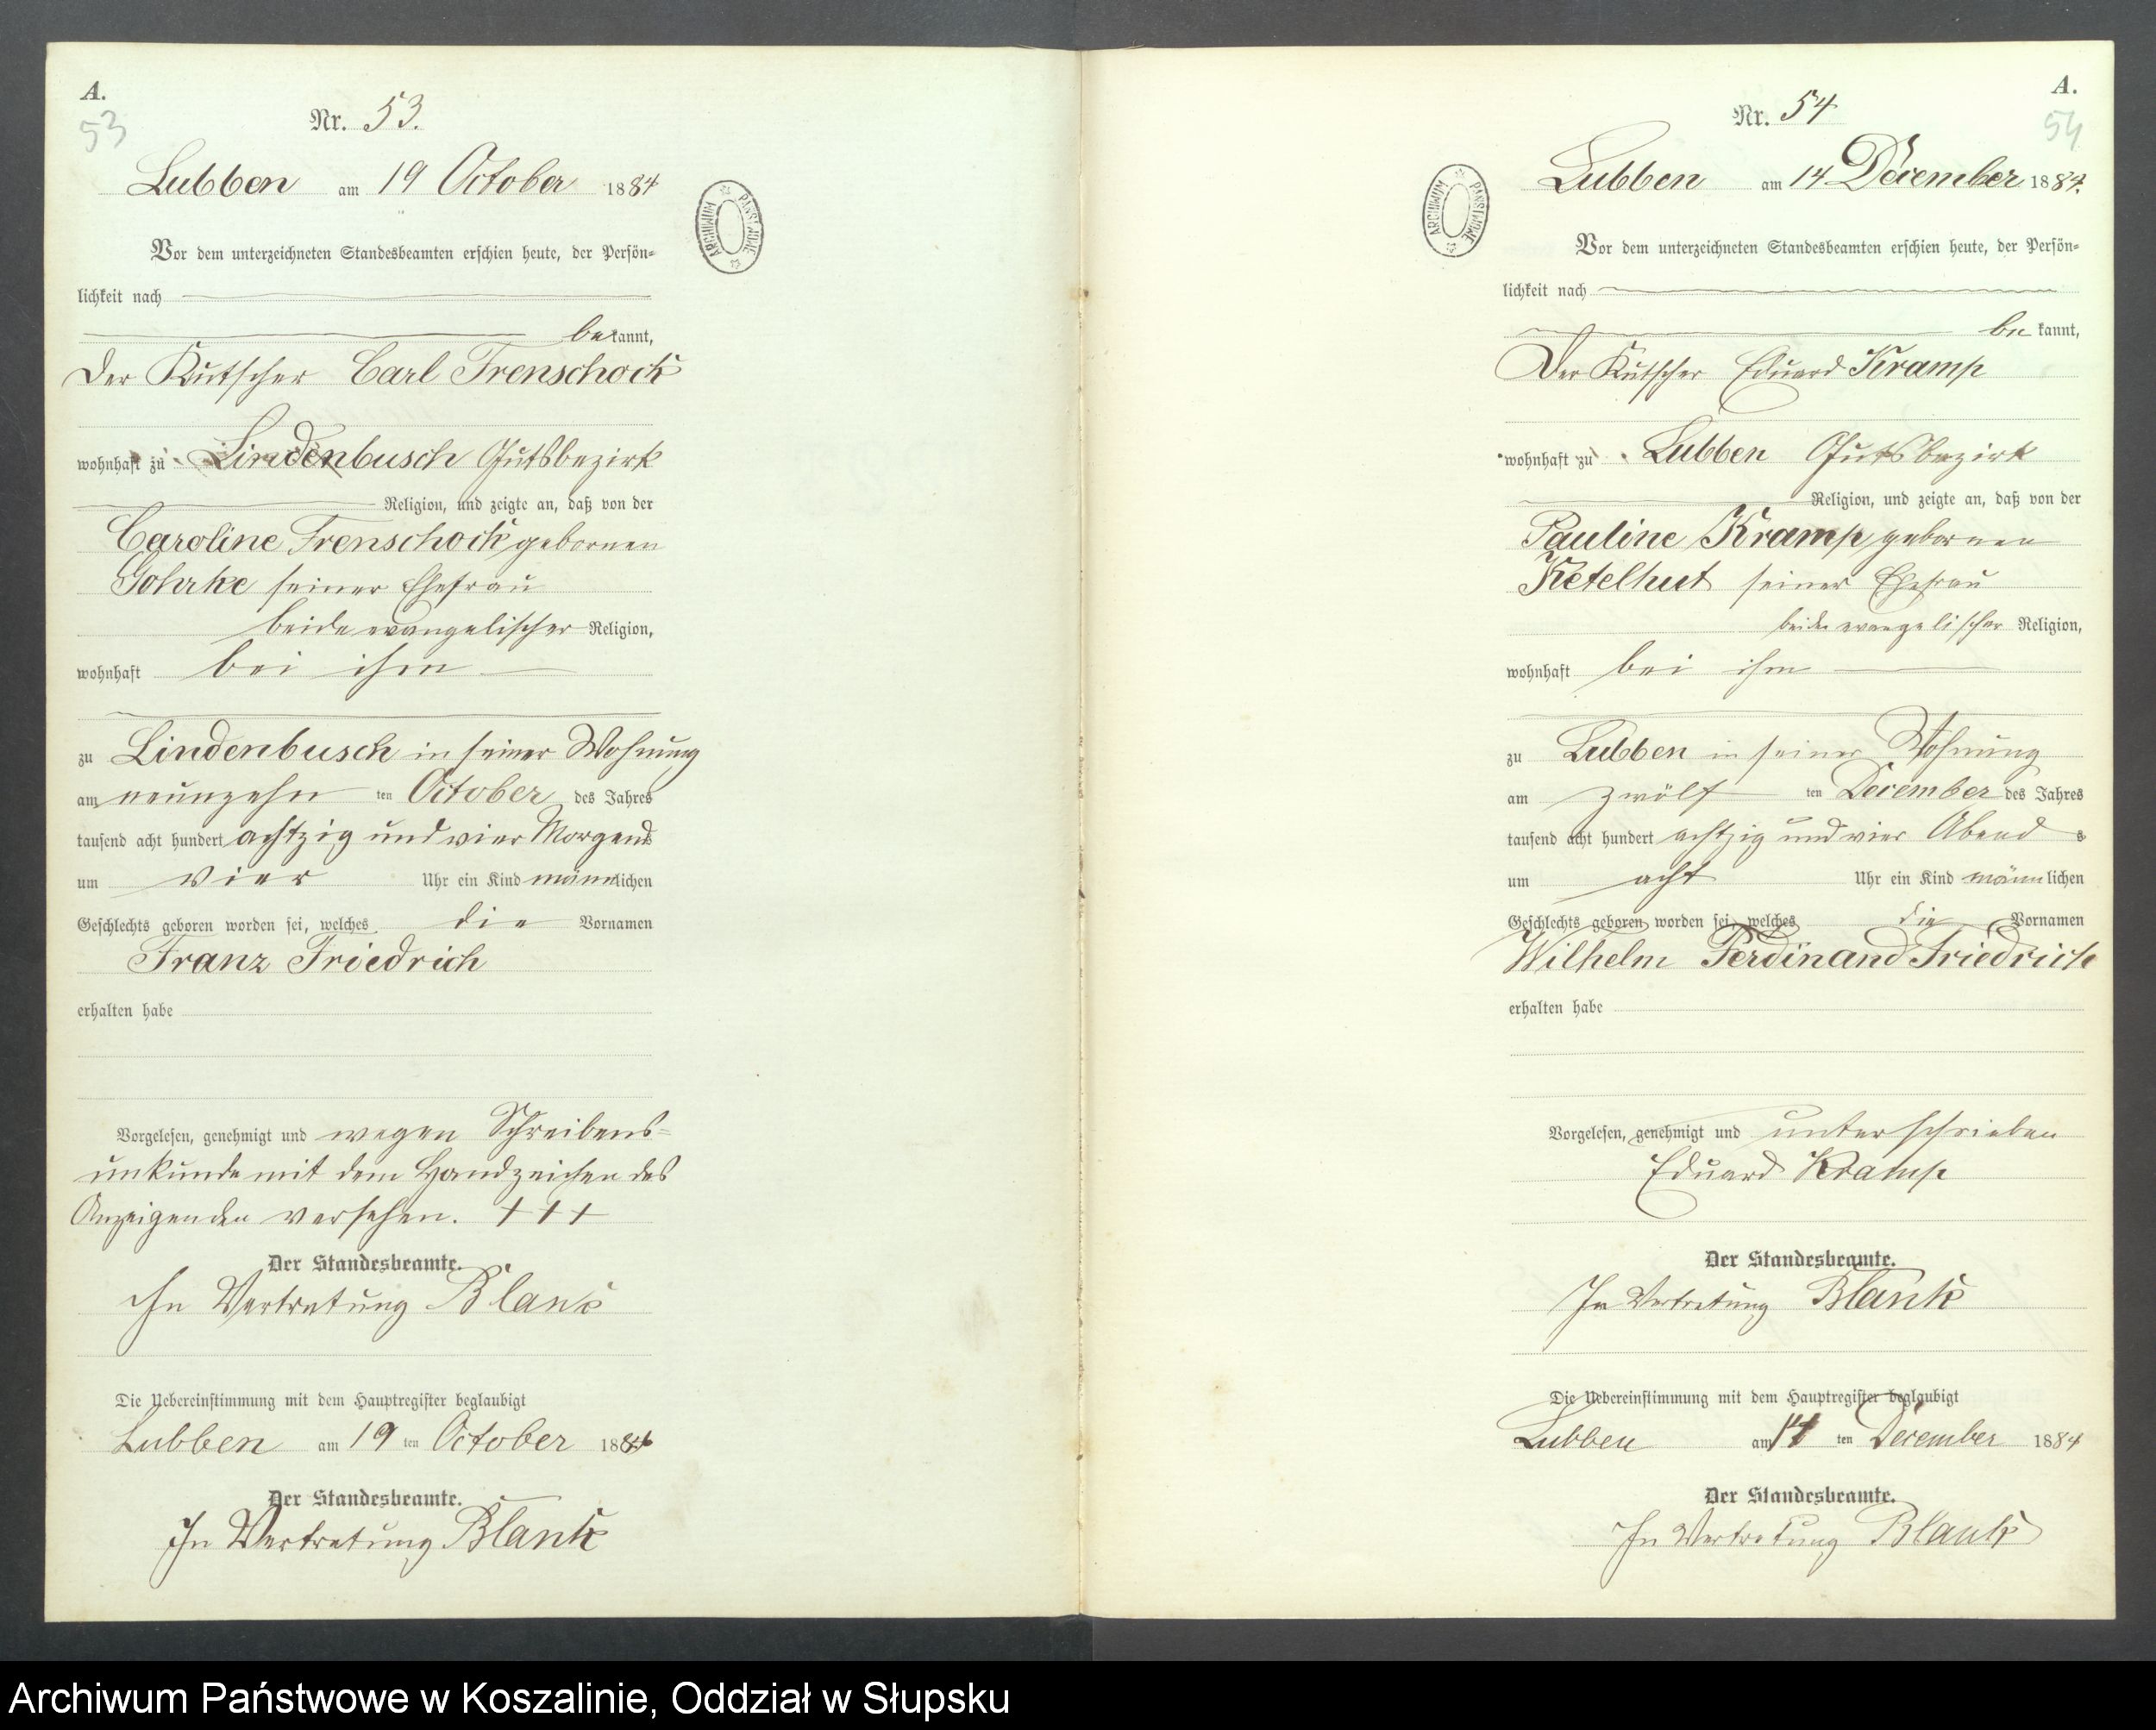 A.
53
Nr. 53.
Lubben am 19 October 1884
ARCHIWUM PAŃSTWOWE
Vor dem unterzeichneten Standesbeamten erschien heute, der Persön=
lichkeit nach
bekannt,
Der Kutscher Carl Trenschock
wohnhaft zu Lindenbusch Gutsbezirk
Religion, und zeigte an, daß von der
Caroline Trenschock gebornen
Gohrke seiner Ehefrau
beide evangelischer Religion,
wohnhaft bei ihm
zu Lindenbusch in seiner Wohnung
am neunzehn ten October des Jahres
tausend acht hundert achtzig und vier Morgens
um vier Uhr ein Kind männlichen
Geschlechts geboren worden sei, welches die Vornamen
Franz Friedrich
erhalten habe
Vorgelesen, genehmigt und wegen Schreibens=
unkunde mit dem Handzeichen des
Anzeigenden versehen. +++
Der Standesbeamte.
In Vertretung Blank
Die Uebereinstimmung mit dem Hauptregister beglaubigt
Lubben am 19 ten October 1884
Der Standesbeamte.
In Vertretung Blank
A.
54
Nr. 54
Lubben am 14 December 1884.
ARCHIWUM PAŃSTWOWE
Vor dem unterzeichneten Standesbeamten erschien heute, der Persön=
lichkeit nach
be kannt,
Der Kutscher Eduard Kramp
wohnhaft zu Lubben Gutsbezirk
Religion, und zeigte an, daß von der
Pauline Kramp gebornen
Ketelhut seiner Ehefrau
beide evangelischer Religion,
wohnhaft bei ihm
zu Lubben in seiner Wohnung
am zwölf ten December des Jahres
tausend acht hundert achtzig und vier Abend s
um acht Uhr ein Kind männlichen
Geschlechts geboren worden sei, welches die Vornamen
Wilhelm Ferdinand Friedrich
erhalten habe
Vorgelesen, genehmigt und unterschrieben
Eduard Kramp
Der Standesbeamte.
In Vertretung Blank
Die Uebereinstimmung mit dem Hauptregister beglaubigt
Lubben am 14 ten December 1884
Der Standesbeamte.
In Vertretung Blank
Archiwum Państwowe w Koszalinie, Oddział w Słupsku